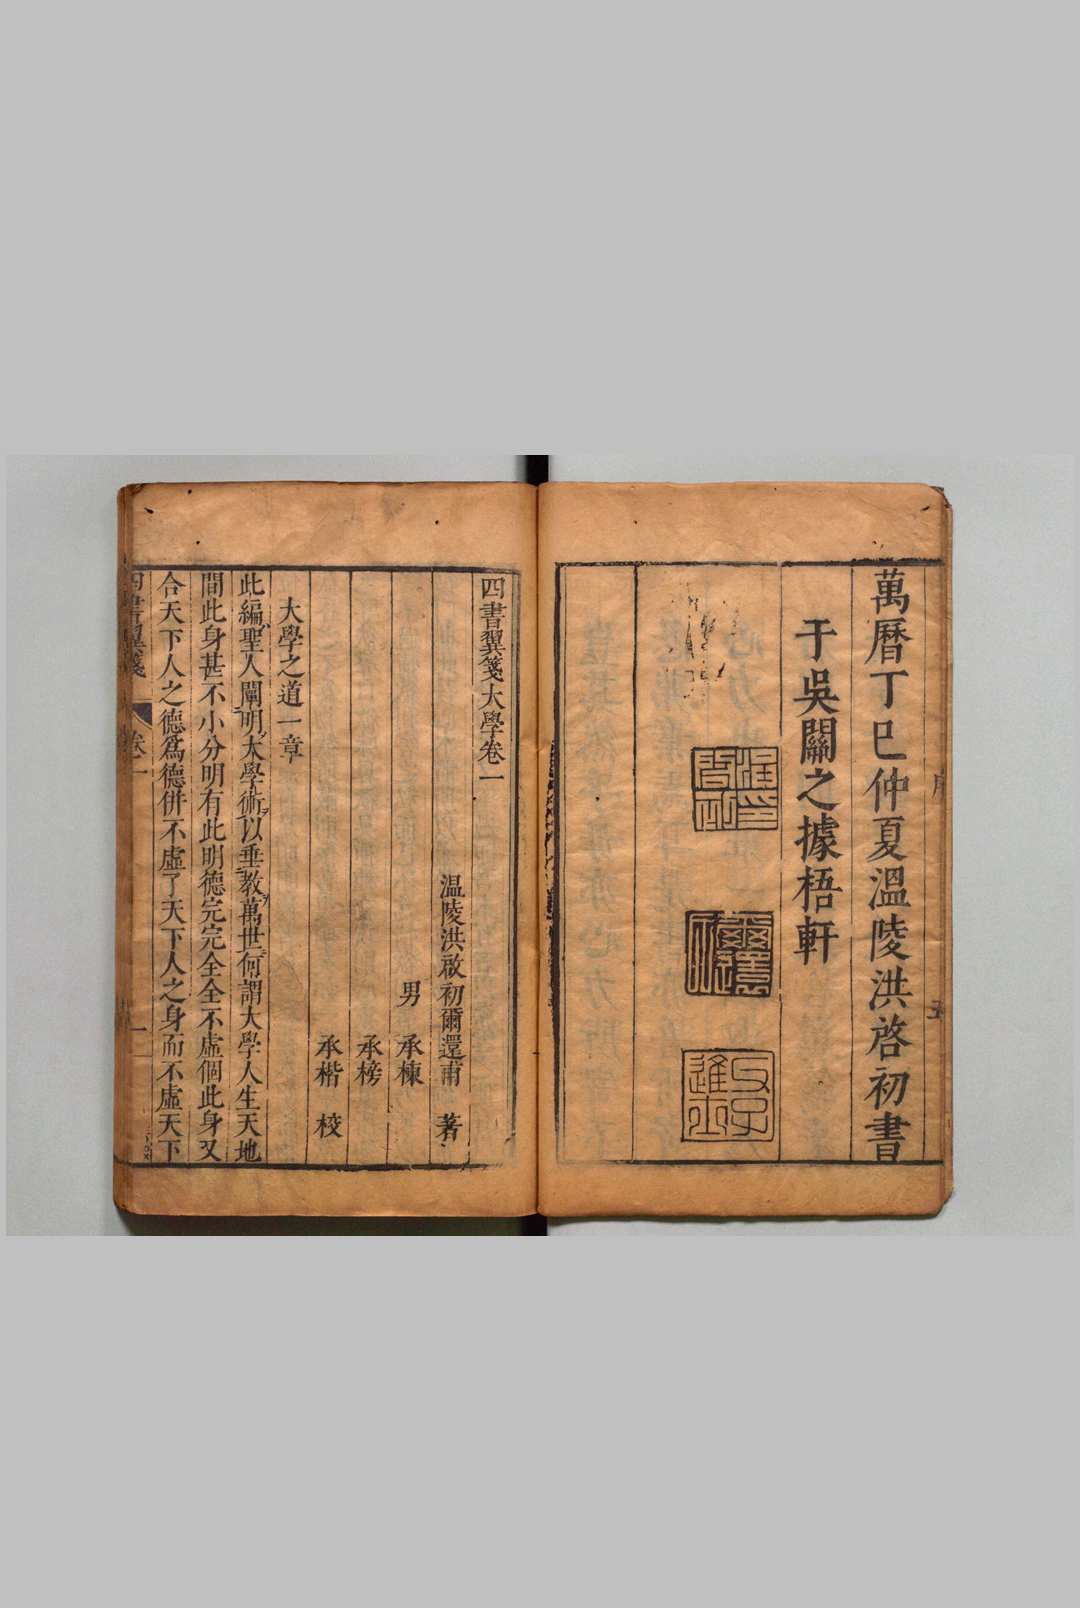 萬曆丁巳仲夏溫陵洪啓初書
于吳關之據梧軒
四書翼箋大學卷一
温陵洪啟初爾還甫 著
男 承棟
承榜
承楷 校
大學之道一章
此編聖人闡明大學術以垂教萬世何謂大學人生天地
間此身甚不小分明有此明德完完全全不虛個此身又
合天下人之德爲德併不虛了天下人之身而不虛天下
四書翼箋 卷一 一